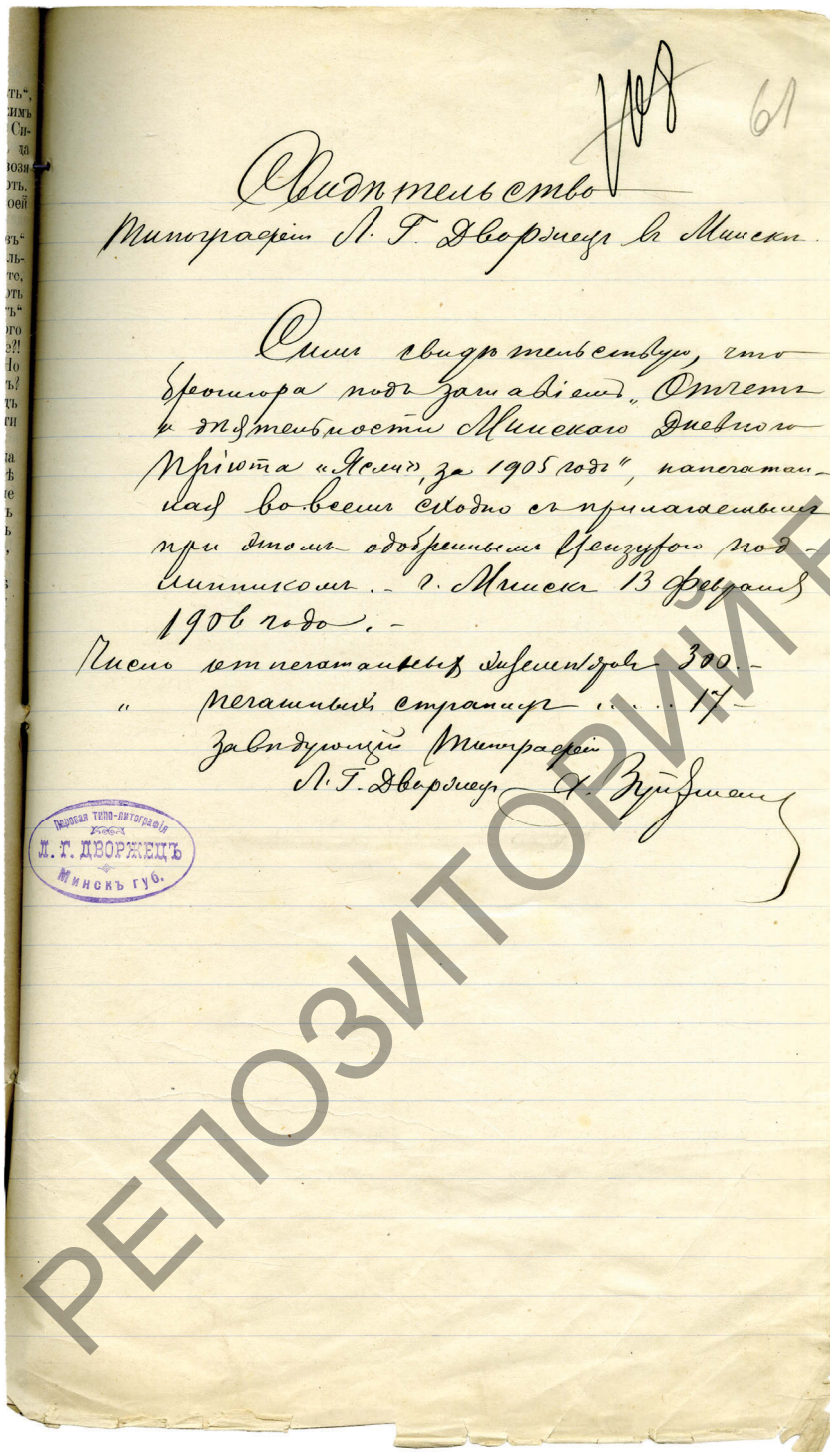 108
61
Свидѣтельство
Типографіи Л. Г. Дворжецъ въ Минскѣ.
Симъ свидѣтельствую, что
брошюра подъ заглавіемъ „Отчетъ
о дѣятельности Минскаго Дневного
Пріюта «Ясли», за 1905 годъ“, напечатан-
ная во всемъ сходно съ прилагаемымъ
при этомъ одобреннымъ Цензурою под-
линникомъ. - г. Минскъ 13 Февраля
1906 года. -
Число отпечатанныхъ экземпляровъ 300. -
„ печатныхъ страницъ . . . . . 17 -
Завѣдующій Типографіей
Л. Г. Дворжецъ
Паровая типо-литографія
Л. Г. ДВОРЖЕЦЪ
Минскъ губ.
РЕПОЗИТОРИЙ